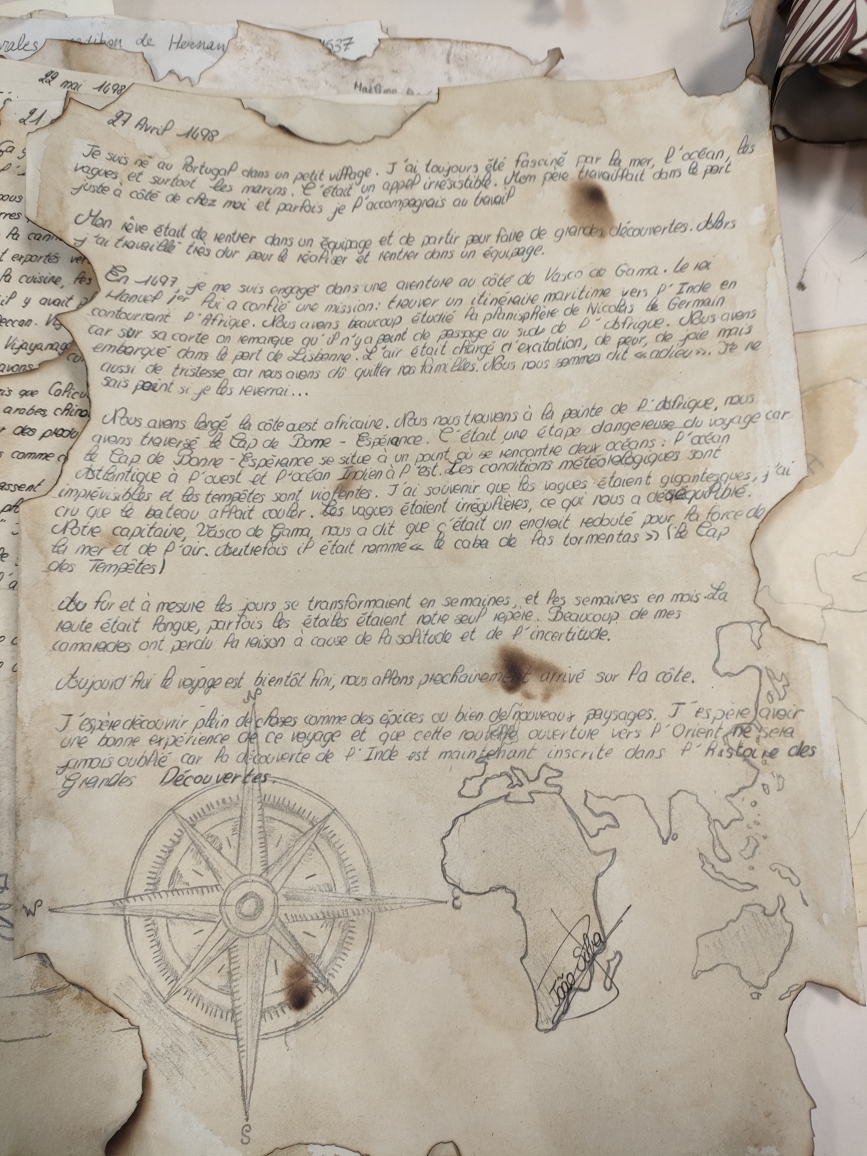 27 Avril 1498
Je suis né au Portugal dans un petit village. J'ai toujours été fasciné par la mer, l'océan, les
vagues, et surtout les marins. C'était un appel irrésistible. Mon père travaillait dans le port
juste à côté de chez moi et parfois je l'accompagnais au travail
Mon rêve était de rentrer dans un équipage et de partir pour faire de grandes découvertes. Alors
j'ai travaillé très dur pour le réaliser et rentrer dans un équipage.
En 1497, je me suis engagé dans une aventure au côté de Vasco de Gama. Le roi
Manuel 1er lui a confié une mission: trouver un itinéraire maritime vers l'Inde en
contournant l'Afrique. Nous avons beaucoup étudié la planisphère de Nicolas le Germain
car sur sa carte on remarque qu'il n'y a point de passage au sud de l'Afrique. Nous avons
embarqué dans le port de Lisbonne. L'air était chargé d'excitation, de peur, de joie mais
aussi de tristesse, car nous avons dû quitter nos familles. Nous nous sommes dit «adieu». Je ne
sais point si je les reverrai...
Nous avons longé la côte ouest africaine. Nous nous trouvons à la pointe de l'Afrique, nous
avons traversé le Cap de Bonne-Espérance. C'était une étape dangereuse du voyage car
le Cap de Bonne-Espérance se situe à un point où se rencontre deux océans: l'océan
Atlantique à l'ouest et l'océan Indien à l'est. Les conditions météorologiques sont
imprévisibles et les tempêtes sont violentes. J'ai souvenir que les vagues étaient gigantesques, j'ai
cru que le bateau allait couler. Les vagues étaient irrégulières, ce qui nous a déséquilibré.
Notre capitaine, Vasco de Gama, nous a dit que c'était un endroit redouté pour la force de
la mer et de l'air. Autrefois il était nommé « le caba de las tormentas » (le Cap
des Tempêtes)
Au fur et à mesure les jours se transformaient en semaines, et les semaines en mois. La
route était longue, parfois les étoiles étaient notre seul repère. Beaucoup de mes
camarades ont perdu la raison à cause de la solitude et de l'incertitude.
Aujourd'hui le voyage est bientôt fini, nous allons prochainement arrivé sur la côte.
J'espère découvrir plein de choses comme des épices ou bien de nouveaux paysages. J'espère avoir
une bonne expérience de ce voyage et que cette nouvelle ouverture vers l'Orient ne sera
jamais oublié car la découverte de l'Inde est maintenant inscrite dans l'histoire des
Grandes Découvertes.
N
W
E
S
João Silva
de Hernan
1537
22 mai 1498
21